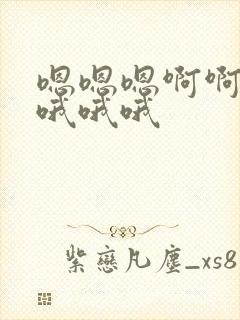 嗯嗯嗯啊啊
哦哦哦
紫恋凡尘_xs8